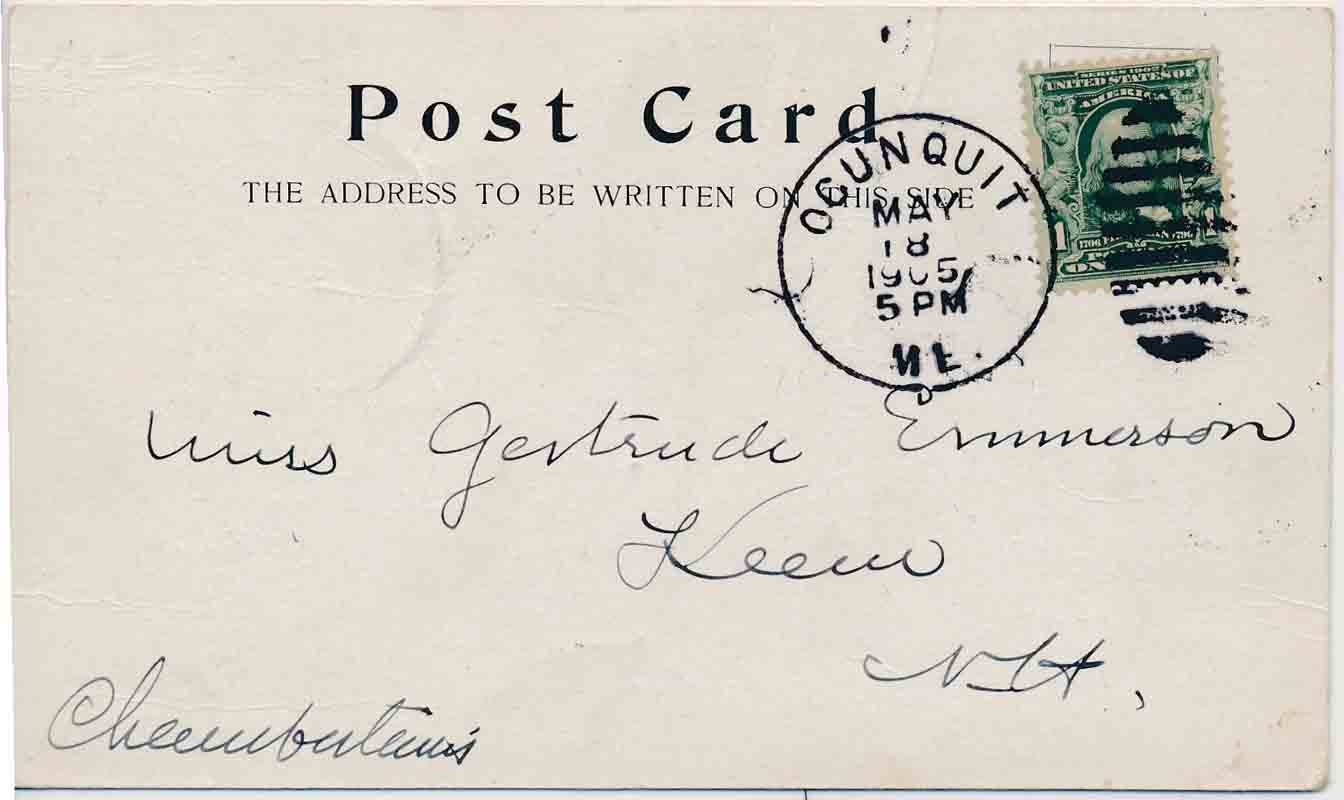 Post Card
THE ADDRESS TO BE WRITTEN ON THIS SIDE
SERIES 1902
UNITED STATES OF
AMERICA
1
1
OGUNQUIT
MAY
18
1905
5 PM
ME.
D
Miss Gertrude Emmerson
Keene
N.H.,
Chamberlain's